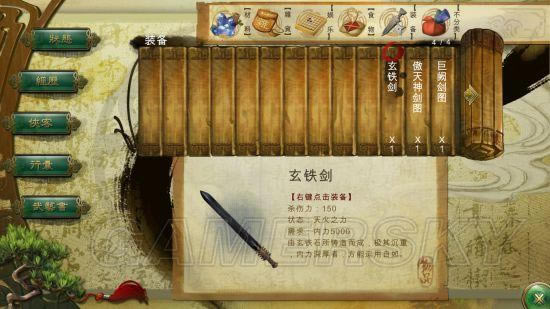 材料
雜貨
娱乐
食物
装备
不分类
狀態
經歷
俠客
行囊
武藝書
装备
4 / 4
玄铁剑
X1
傲天神剑图
X1
巨阙剑图
X1
玄铁剑
【右键点击装备】
杀伤力：150
状态：天火之力
需求：内力5000
由玄铁石所铸造而成，极其沉重
，内力深厚者，方能运用自如。
物品
GAMERSKY